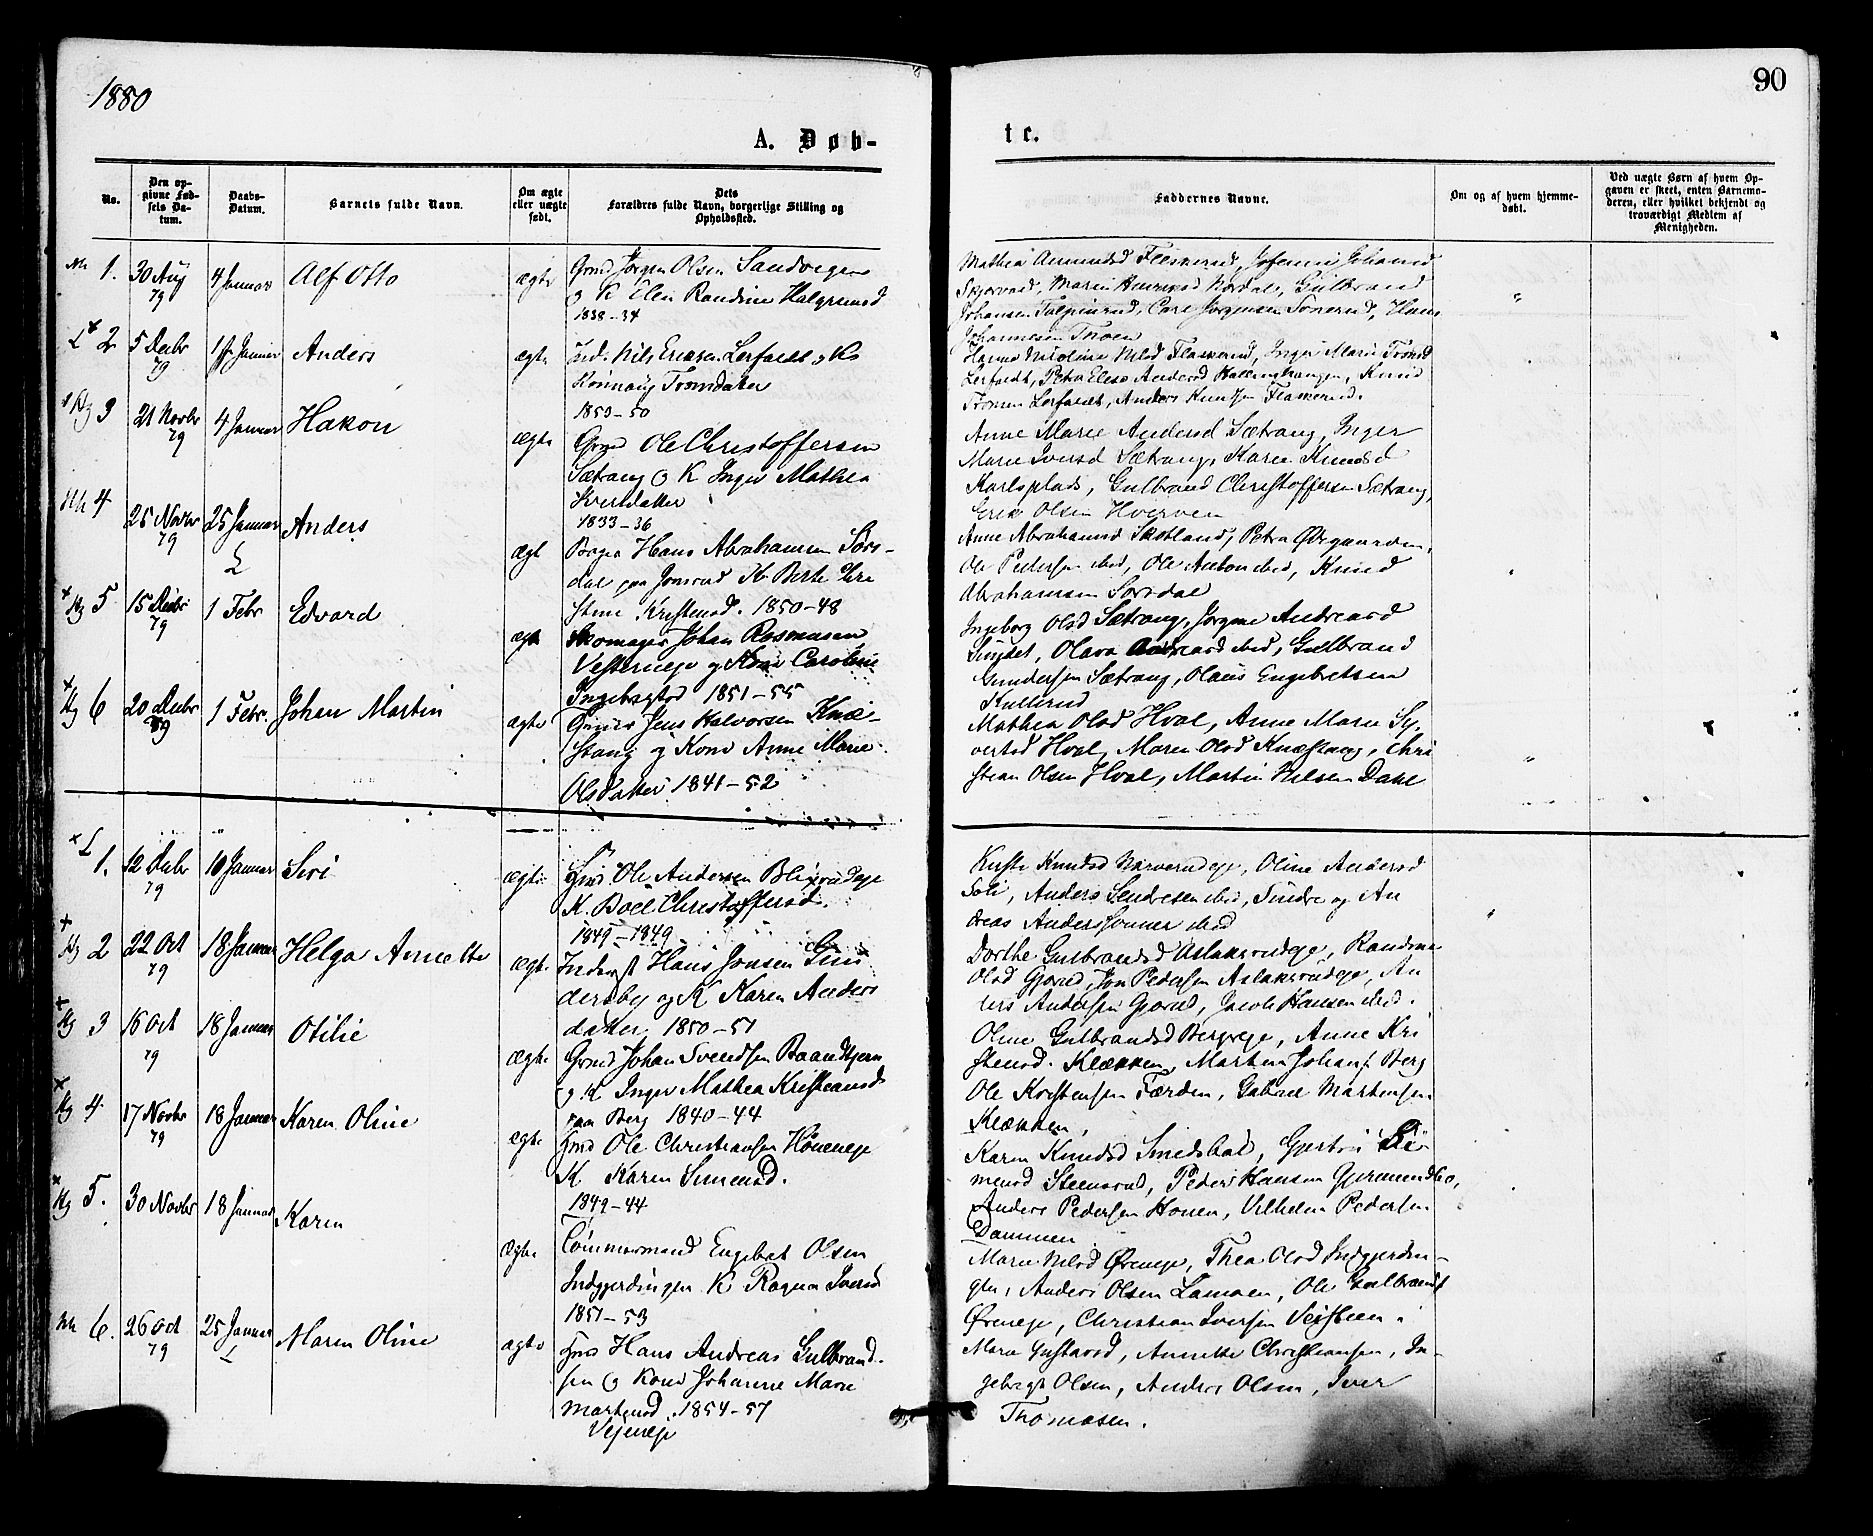 1880
90
A. Døb-
te.
No.
Den op-
givne Fød-
sels Da-
tum.
Daabs-
Datum.
Barnets fulde Navn.
Om ægte
eller uægte
født.
Dets
Forældres fulde Navn, borgerlige Stilling og
Opholdssted.
Faddernes Navne.
Om og af hvem hjemme-
døbt.
Ved uægte Børn af hvem Op-
gaven er skeet, enten Barnemo-
deren, eller hvilket bekjendt og
troværdigt Medlem af
Menigheden.
1. 30 Aug 79 4 Januar Alf Otto ægte
Jørgen Olsen
K Elen Randine
1838-34
Johansen Carl Jørgensen Hans
Johannesen Moen
L 2 5 Decbr 79 Januar Anders ægte
Ind. Nils Ericsen Lerfaldt
Tronsdatter
1850-50
Inger Marie
Lerfaldt, Knud
Lerfaldt, Anders Knutsen Flaskerud.
Hg 3 21 Novbr 79 4 Januar Hakon ægte
Grmd Ole Christoffersen
Sætrang og K Inger Mathea
Iversdatter
1833-36
Anne Marie Andersd Sætrang, Inger
Marie Iversd Sætrang, Karen Knudsd
Karlsplads, Gulbrand Christoffersen Sætrang,
Erik Olsen Hverven
4 25 Novbr 79 25 Januar Anders ægt
Hans Abrahamsen Sørs-
dal K Berte Chri
stine Kristensd. 1850-48
Anne Abrahamsd Skotland, Petra
Ole Pedersen ibid, Ole Anton ibid, Knud
Abrahamsen Sørsdal
Hg 5 15 Decbr 79 1 Febr Edvard ægte
Skomager Johan Rasmusen
Vesterneje og Kone Caroline
Ingebregtsd 1851-55
Ingeborg Olsd Sætrang, Jørgine Andreasd
Olava ibid, Gulbrand
Gundersen Sætrang, Olaus Engebretsen
Kullerud
Hg 6 20 Decbr 79 1 Febr. Johan Martin ægte
Jens Halvorsen Knæ-
stang og Kone Anne Marie
Olsdatter 1841-52
Mathea Olsd Hval, Anne Marie Sy-
vertsd Hval, Maren Olsd Knæstang, Chri
stian Olsen Hval, Martin Nilsen Dahl
L 1. 12 Decbr 79 10 Januar Siri ægte
Ole Andersen
K. Boel Christoffersd.
1849-1849
Knudsd Oline Andersd
Anders Sendresen ibid, Sindre og An
dreas Anderssønner ibid
Hg 2 22 Oct 79 18 Januar Helga Annette ægte
Inderst Hans Jonsen Gun
dersby og K Karen Anders
datter 1850-51
Dorthe Gulbrandsd Aslaksrudeje, Randine
Olsd Gjørud, Jon Pedersen Aslaksrudeje, An
ders Andersen Gjørud, Jacob Hansen ibid.
Hg 3 16 Oct 79 18 Januar Otilie ægte
Grmd Johan Svendsen Baandtjern
og K Inger Mathea Kristiansd
paa Berg 1840-44
Oline Gulbrandsd Bergseje, Anne Kri
stensd. Klækken, Martin Johans. Berg
Ole Kristensen Færden, Gabriel Martensen
Klækken,
Hg 4 17 Novbr 79 18 Januar Karen Oline ægte
Ole Christiansen Høneneje
K Karen Simensd.
1849-44
Karen Knudsd Smedsdal, Si
mensd Steensrud, Peder Hansen Gjermundbo,
Anders Pedersen Honen, Vilhelm Pedersen
Dammen
Hg 5. 30 Novbr 18 Januar Karen Ægte
Tømmermand Engebret Olsen
Indgjerdingen K Ragna Iversd
1851-53
Marie Nilsd Øreneje, Thea Olsd Indgjerdin-
gen, Anders Olsen Lamoen, Ole Gulbrands
Øreneje, Christian Iversen Vejsteen
6. 26 Oct 79 25 Januar Maren Oline ægte
Hans Andreas Gulbrand-
sen og Kone Johanne Marie
Martensd. 1854-57
Vejeneje
Maria Gustavsd, Annette Christiansen, In-
gebregt Olsen, Anders Olsen, Iver
Thomasen.